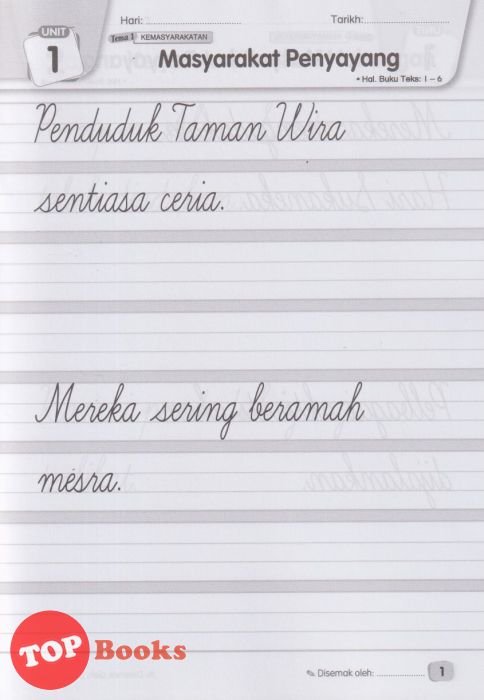 Hari:
Tarikh:
UNIT
1
Tema 1 KEMASYARAKATAN
Masyarakat Penyayang
• Hal. Buku Teks: 1 – 6
Penduduk Taman Wira
sentiasa ceria.
Mereka sering beramah
mesra.
TOP Books
Disemak oleh:
1